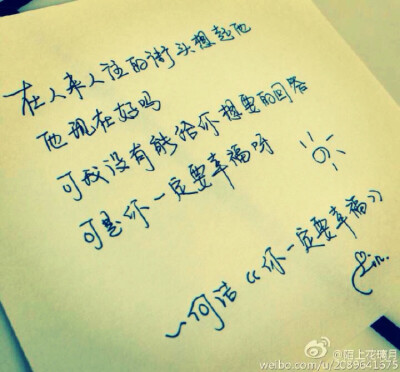 在人来人往的街头想起他
他现在好吗
可我没有能给你想要的回答
可是你一定要幸福呀
~何洁《你一定要幸福》
Lin.
@陌上花犊月
weibo.com/u/2089641375